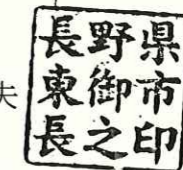 夫
長野県
東御市
長之印